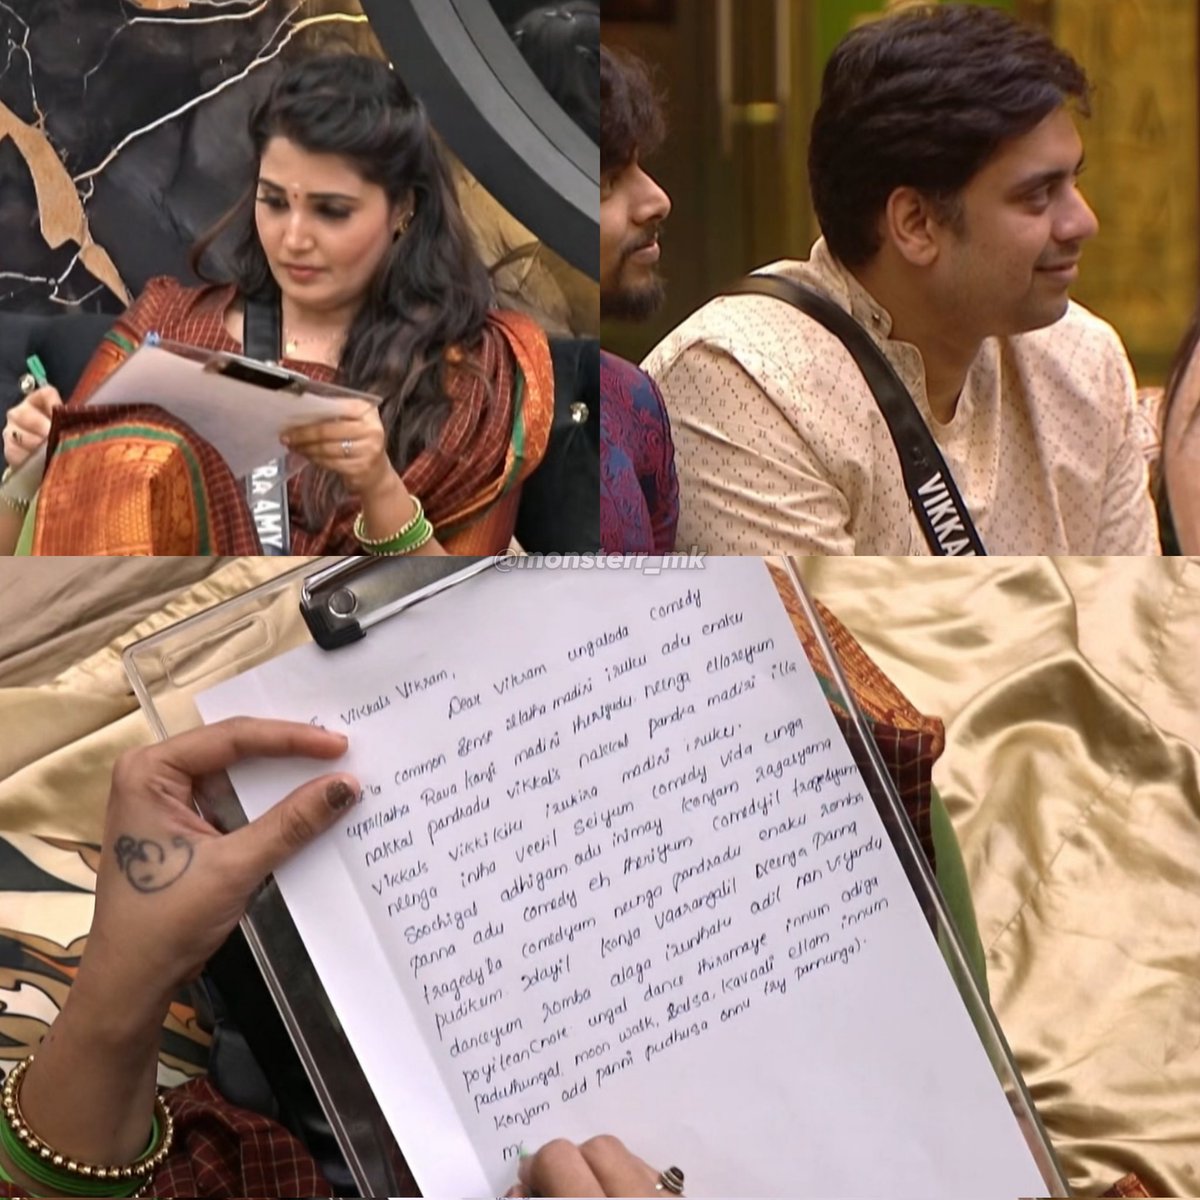 RA AMY
VIKKA
@monsterr_mk
Vikkals Vikram,
Dear Vikram ungaloda comedy
la common sense illatha madiri iruku adu enaku
uppillatha Rava kanji madiri therigudu. neenga elloreyum
nakkal pandradu vikkals nakkal pandra madiri illa
vikkals vikkikiku irukira madiri iruku.
neenga intha veetil seiyum comedy vida unga
Soochigal adhigam. adu inimay konjam ragasyama
panna adu comedy eh theriyum comedyil tragedyum
tragedyla comedyum neenga pandradu enaku romba
pudikum. Idayil konja vaarangalil Neenga panna
danceyum romba alaga irunthatu adil nan viyandu
poyitean (note: ungal dance thiramaye innum adiga
paduthungal. moon walk, Salsa, kavaali ellam innum
konjam add panni pudhusa onnu try pannunga).